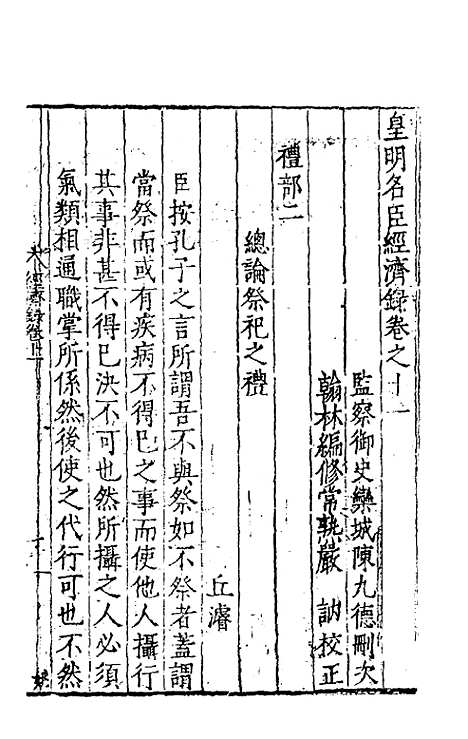 皇明名臣經濟錄卷之十一
監察御史欒城陳九德刪次
翰林編修常熟嚴 訥校正
禮部二
總論祭祀之禮
丘濬
臣按孔子之言所謂吾不與祭如不祭者蓋謂
當祭而或有疾病不得已之事而使他人攝行
其事非甚不得已決不可也然所攝之人必須
氣類相通職掌所係然後使之代行可也不然